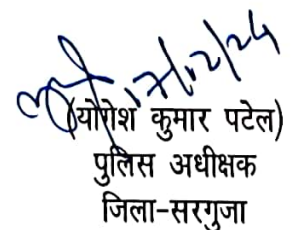 17/02/24
(योगेश कुमार पटेल)
पुलिस अधीक्षक
जिला-सरगुजा